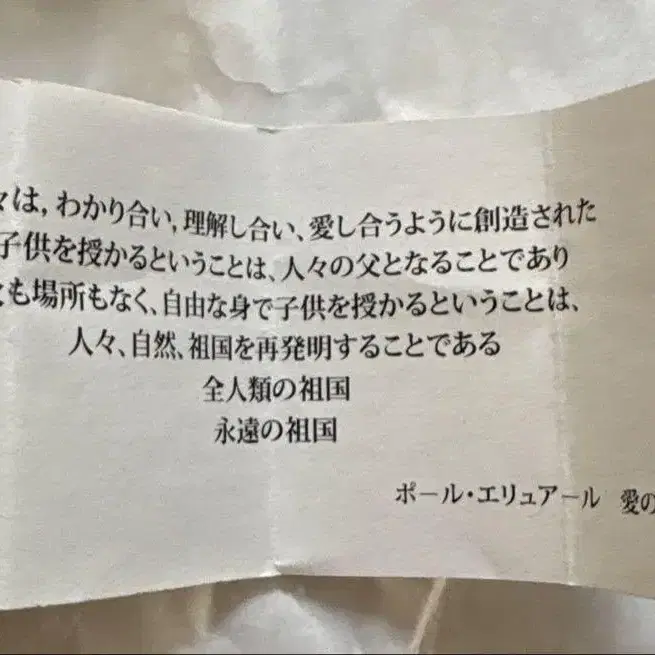 々は，わかり合い，理解し合い、愛し合うように創造された
子供を授かるということは、人々の父となることであり
も場所もなく、自由な身で子供を授かるということは、
人々、自然、祖国を再発明することである
全人類の祖国
永遠の祖国
ポール・エリュアール 愛の